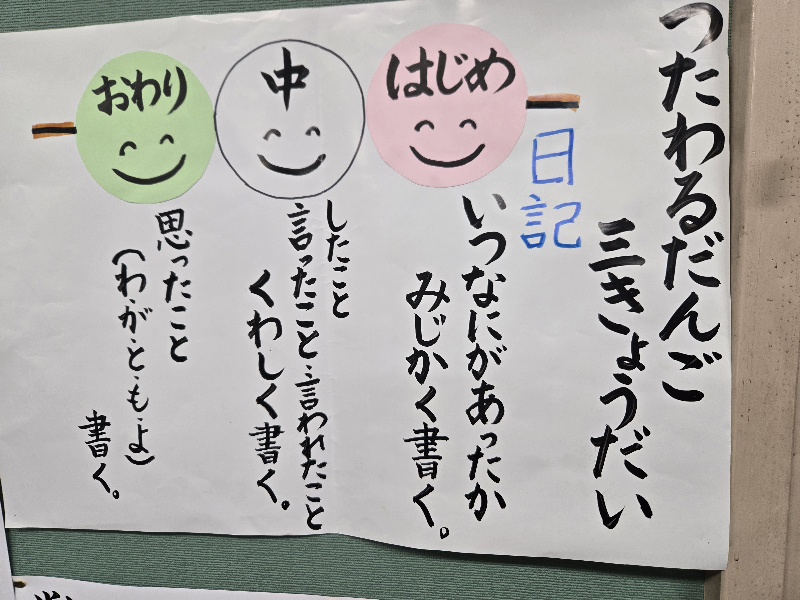 つたわるだんご
三きょうだい
日記
はじめ
いつなにがあったか
みじかく書く。
中
したこと
言ったこと言われたこと
くわしく書く。
おわり
思ったこと
(わ・が・と・も・よ)
書く。